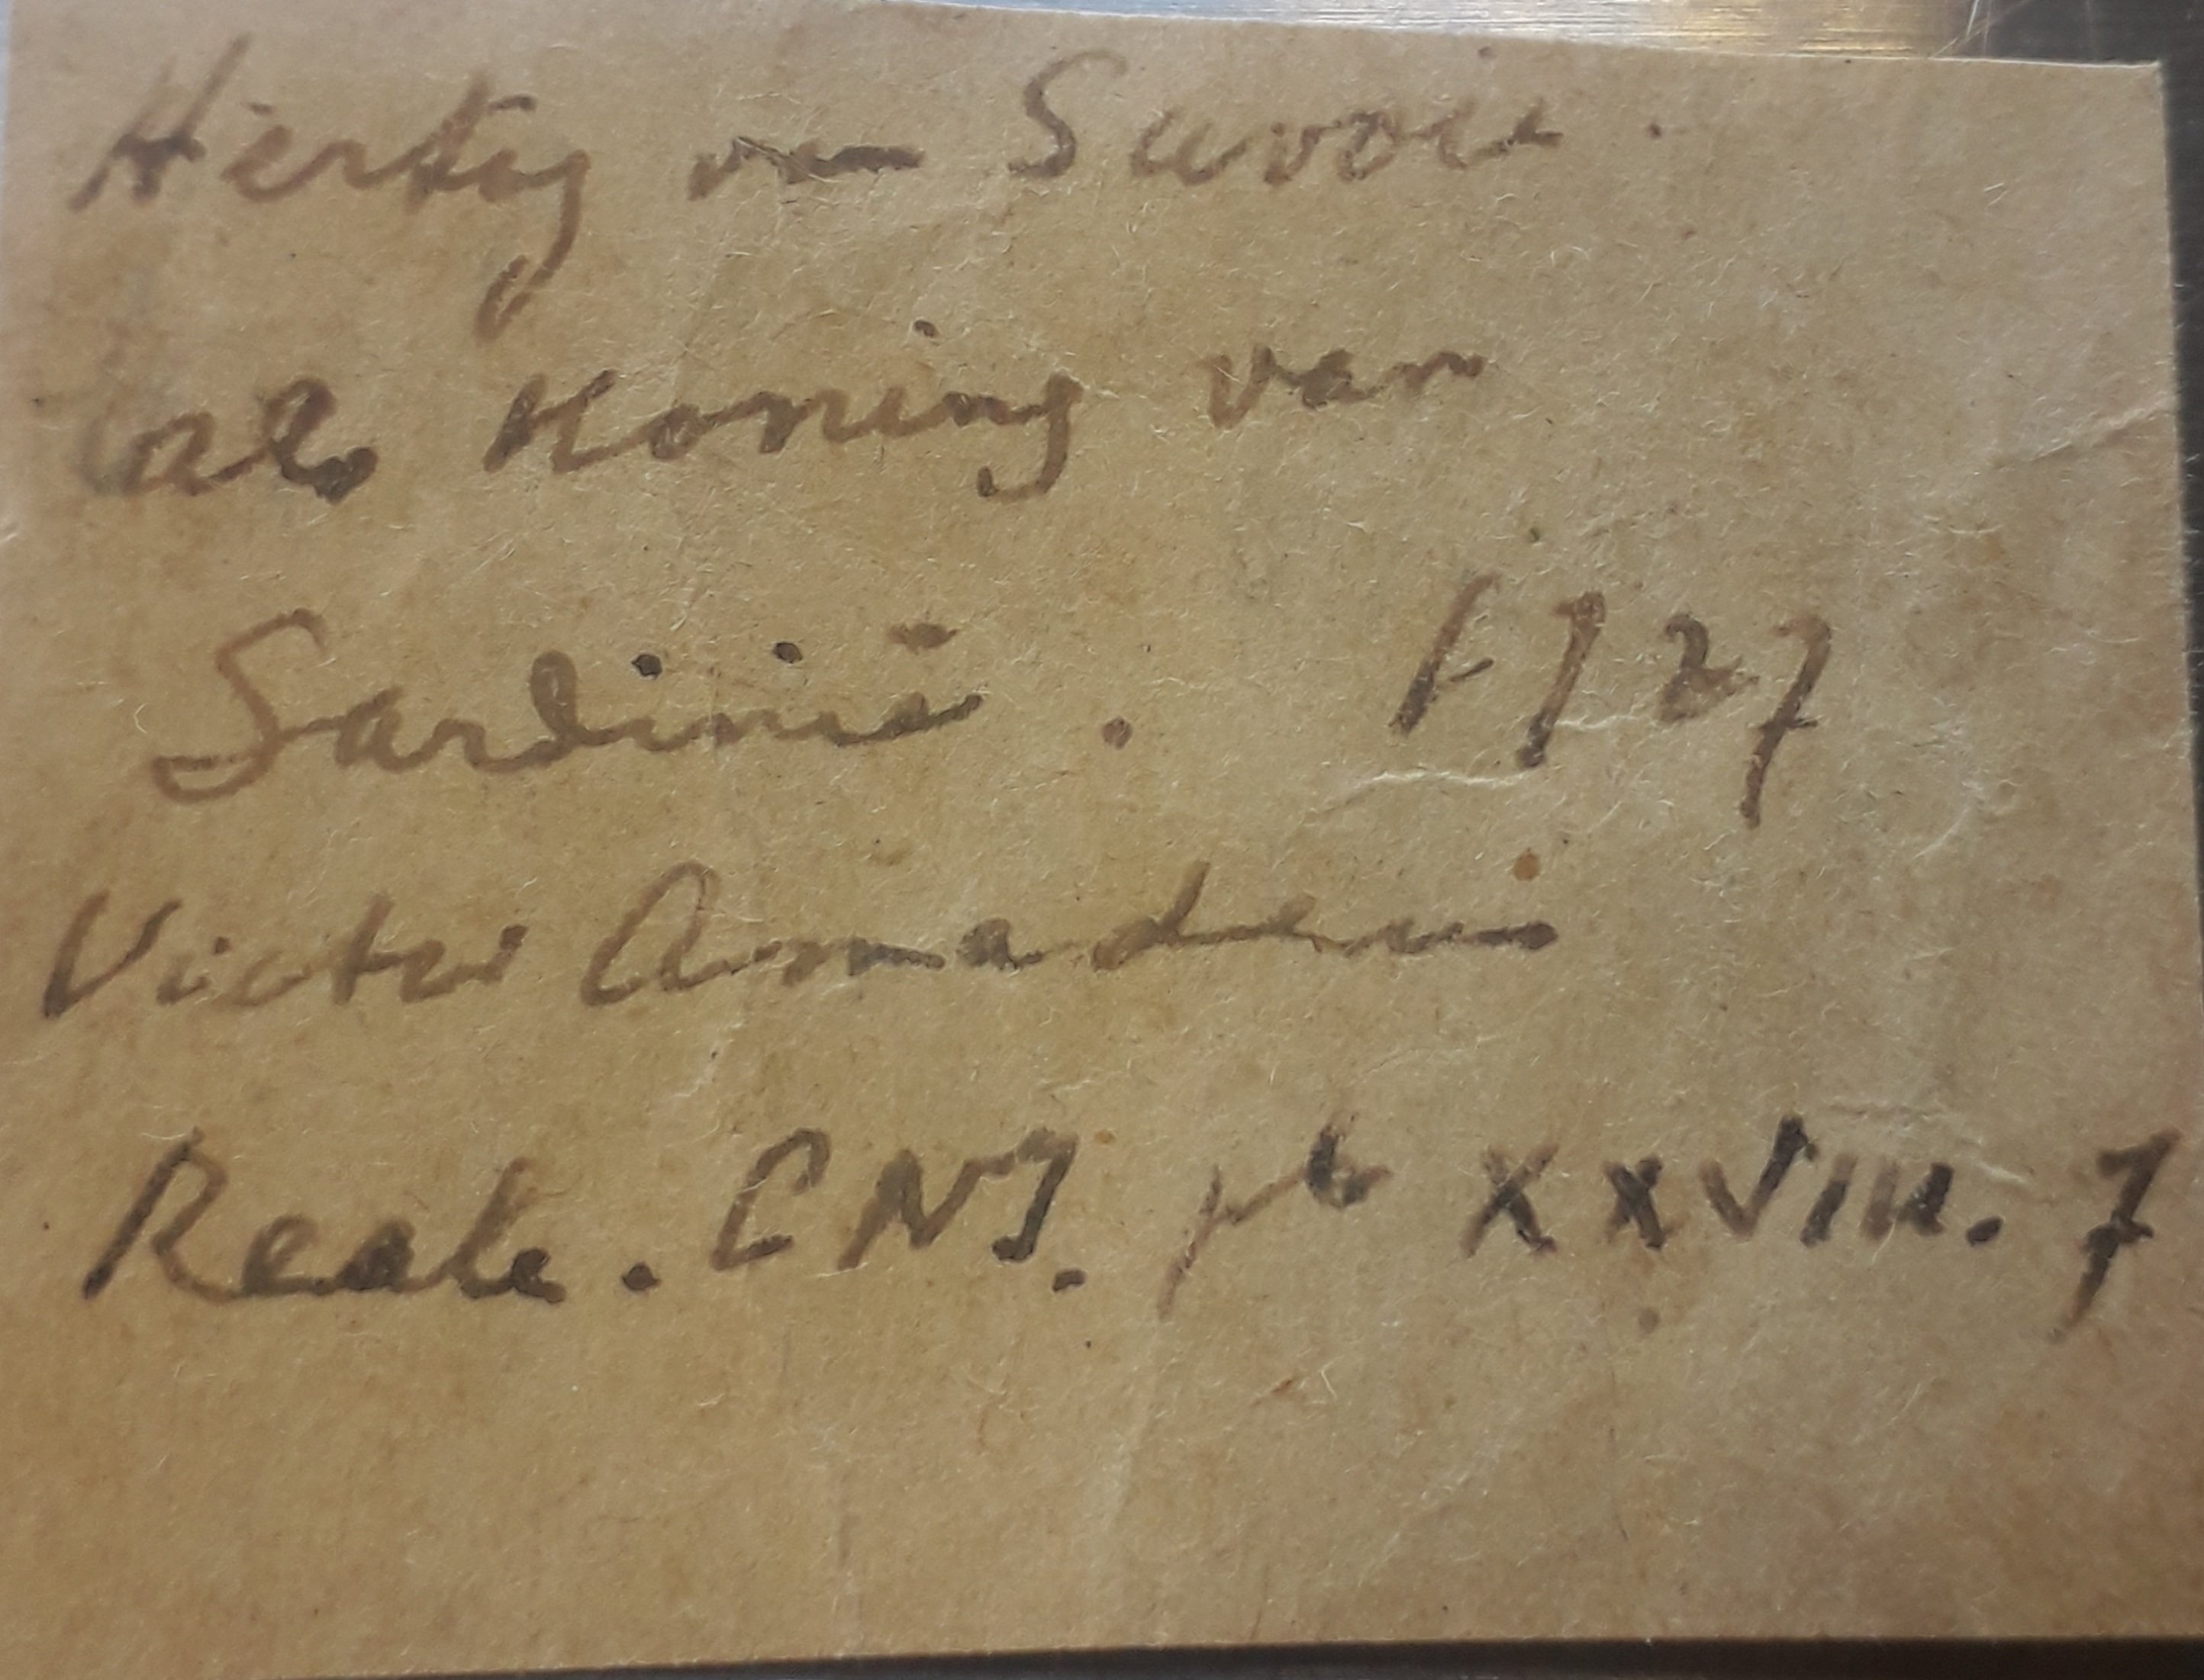 Hertog van Savoie.
als Koning van
Sardinië. 1727
Victor Amadeus
Reale. CNI. pl XXVIII. 7